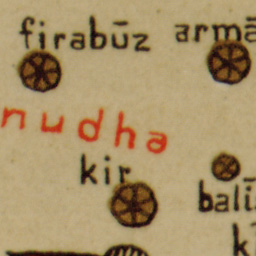 firabūz
armā
nudha
kir
balī
k